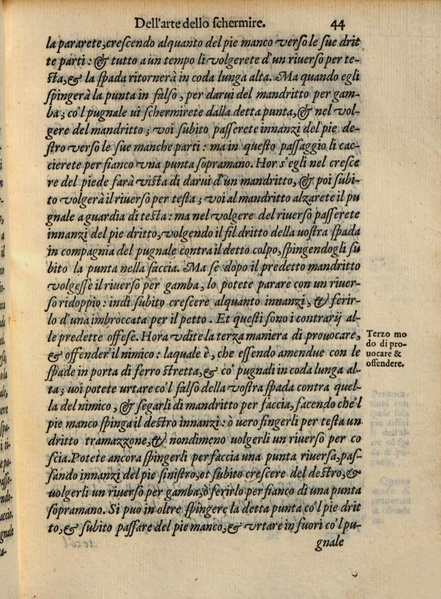 Dell'arte dello schermire. 44
la pararete, crescendo alquanto del pie manco verso le sue drit
te parti: & tutto a un tempo li volgerete d'un riuerso per te-
sta, & la spada ritornerà in coda lunga alta. Ma quando egli
spingerà la punta in falso, per darui del mandritto per gam-
ba; co'l pugnale ui schermirete dalla detta punta, & nel vol-
gere del mandritto; voi subito passerete innanzi del pie de-
stro verso le sue manche parti: ma in questo passaggio li cac-
cierete per fianco vna punta sopramano. Hor s'egli nel cresce
re del piede farà vista di darui d'un mandritto, & poi subi-
to volgerà il riuerso per testa; voi al mandritto alzarete il pu
gnale a guardia di testa: ma nel volgere del riuerso passerete
innanzi del pie dritto, volgendo il fil dritto della uostra spada
in compagnia del pugnale contra il detto colpo, spingendogli su
bito la punta nella faccia. Ma se dopo il predetto mandritto
volgesse il riuerso per gamba, lo potete parare con un riuer-
so ridoppio: indi subito crescere alquanto innanzi, & ferir-
lo d'una imbroccata per il petto. Et questi sono i contrarij al-
le predette offese. Hora vdite la terza maniera di prouocare,
& offender il nimico: laquale è, che essendo amendue con le
spade in porta di ferro stretta, & co' pugnali in coda lunga al
ta; uoi potete urtare co'l falso della vostra spada contra quel-
la del nimico, & segarli di mandritto per faccia, facendo che'l
pie manco spinga il destro innanzi: ò uero fingerli per testa un
dritto tramazzone, & nondimeno volgerli un riuerso per co
scia. Potete ancora spingerli per faccia una punta riuersa, pas-
sando innanzi del pie sinistro, et subito crescere del destro, &
uolgerli un riuerso per gamba; ò ferirlo per fianco di una punta
sopramano. Si puo in oltre spingere la detta punta co'l pie drit
to, & subito passare del pie manco, & vrtare in fuori co'l pu-
gnale
Terzo mo
do di pro-
uocare &
offendere.